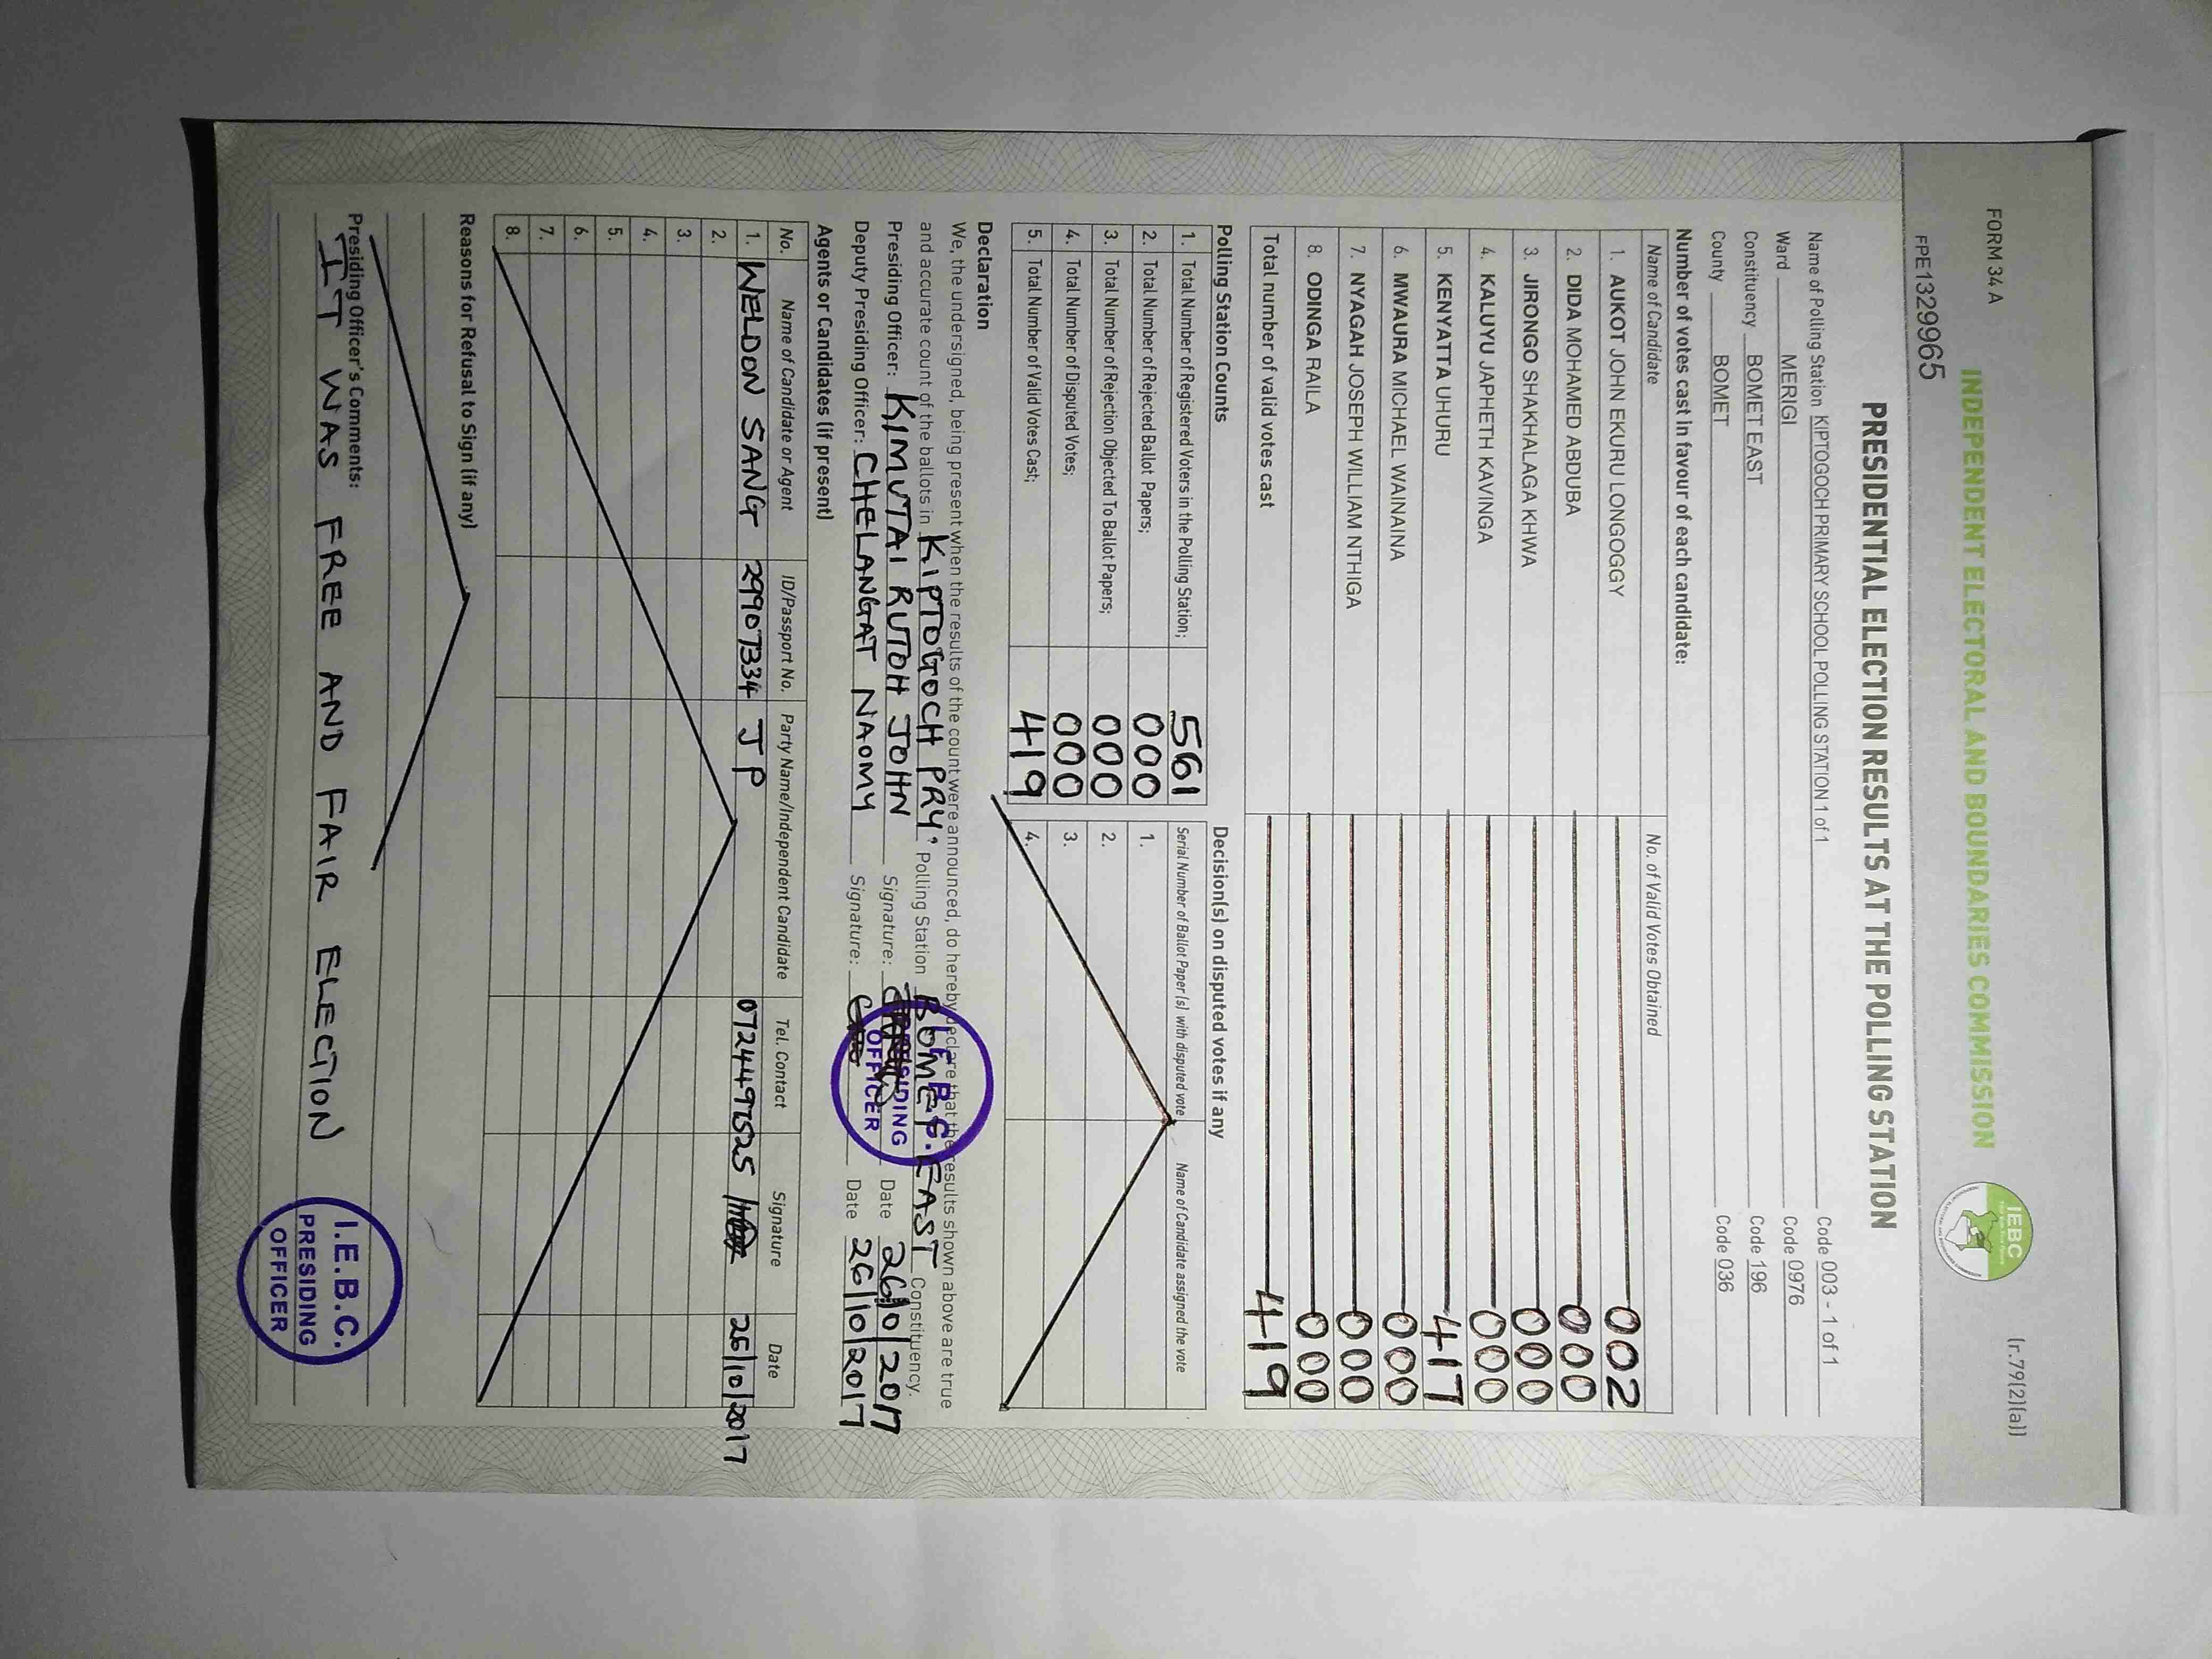 FORM 34 A
(r.79(2)(a))
INDEPENDENT ELECTORAL AND BOUNDARIES COMMISSION
IEBC
FPE1329965
PRESIDENTIAL ELECTION RESULTS AT THE POLLING STATION
Name of Polling Station KIPTOGOCH PRIMARY SCHOOL POLLING STATION 1 of 1 Code 003 - 1 of 1
Ward MERIGI Code 0976
Constituency BOMET EAST Code 196
County BOMET Code 036
Number of votes cast in favour of each candidate:
Name of Candidate No. of Valid Votes Obtained
1. AUKOT JOHN EKURU LONGOGGY 002
2. DIDA MOHAMED ABDUBA 000
3. JIRONGO SHAKHALAGA KHWA 000
4. KALUYU JAPHETH KAVINGA 000
5. KENYATTA UHURU 417
6. MWAURA MICHAEL WAINAINA 000
7. NYAGAH JOSEPH WILLIAM NTHIGA 000
8. ODINGA RAILA 000
Total number of valid votes cast 419
Polling Station Counts
1. Total Number of Registered Voters in the Polling Station; 561
2. Total Number of Rejected Ballot Papers; 000
3. Total Number of Rejection Objected To Ballot Papers; 000
4. Total Number of Disputed Votes; 000
5. Total Number of Valid Votes Cast; 419
Decision(s) on disputed votes if any
Serial Number of Ballot Paper (s) with disputed vote Name of Candidate assigned the vote
1.
2.
3.
4.
Declaration
We, the undersigned, being present when the results of the count were announced, do hereby declare that the results shown above are true
and accurate count of the ballots in KIPTOGOCH PRY. Polling Station BOMET EAST Constituency.
Presiding Officer: KIMUTAI RUTOH JOHN Signature: Date 26/10/2017
Deputy Presiding Officer: CHELANGAT NAOMY Signature: Date 26/10/2017
I.E.B.C.
PRESIDING
OFFICER
Agents or Candidates (if present)
No. Name of Candidate or Agent ID/Passport No. Party Name/Independent Candidate Tel. Contact Signature Date
1. WELDON SANG 29907334 JP 0724497525 26/10/2017
2.
3.
4.
5.
6.
7.
8.
Reasons for Refusal to Sign (if any)
Presiding Officer's Comments:
IT WAS FREE AND FAIR ELECTION
I.E.B.C.
PRESIDING
OFFICER